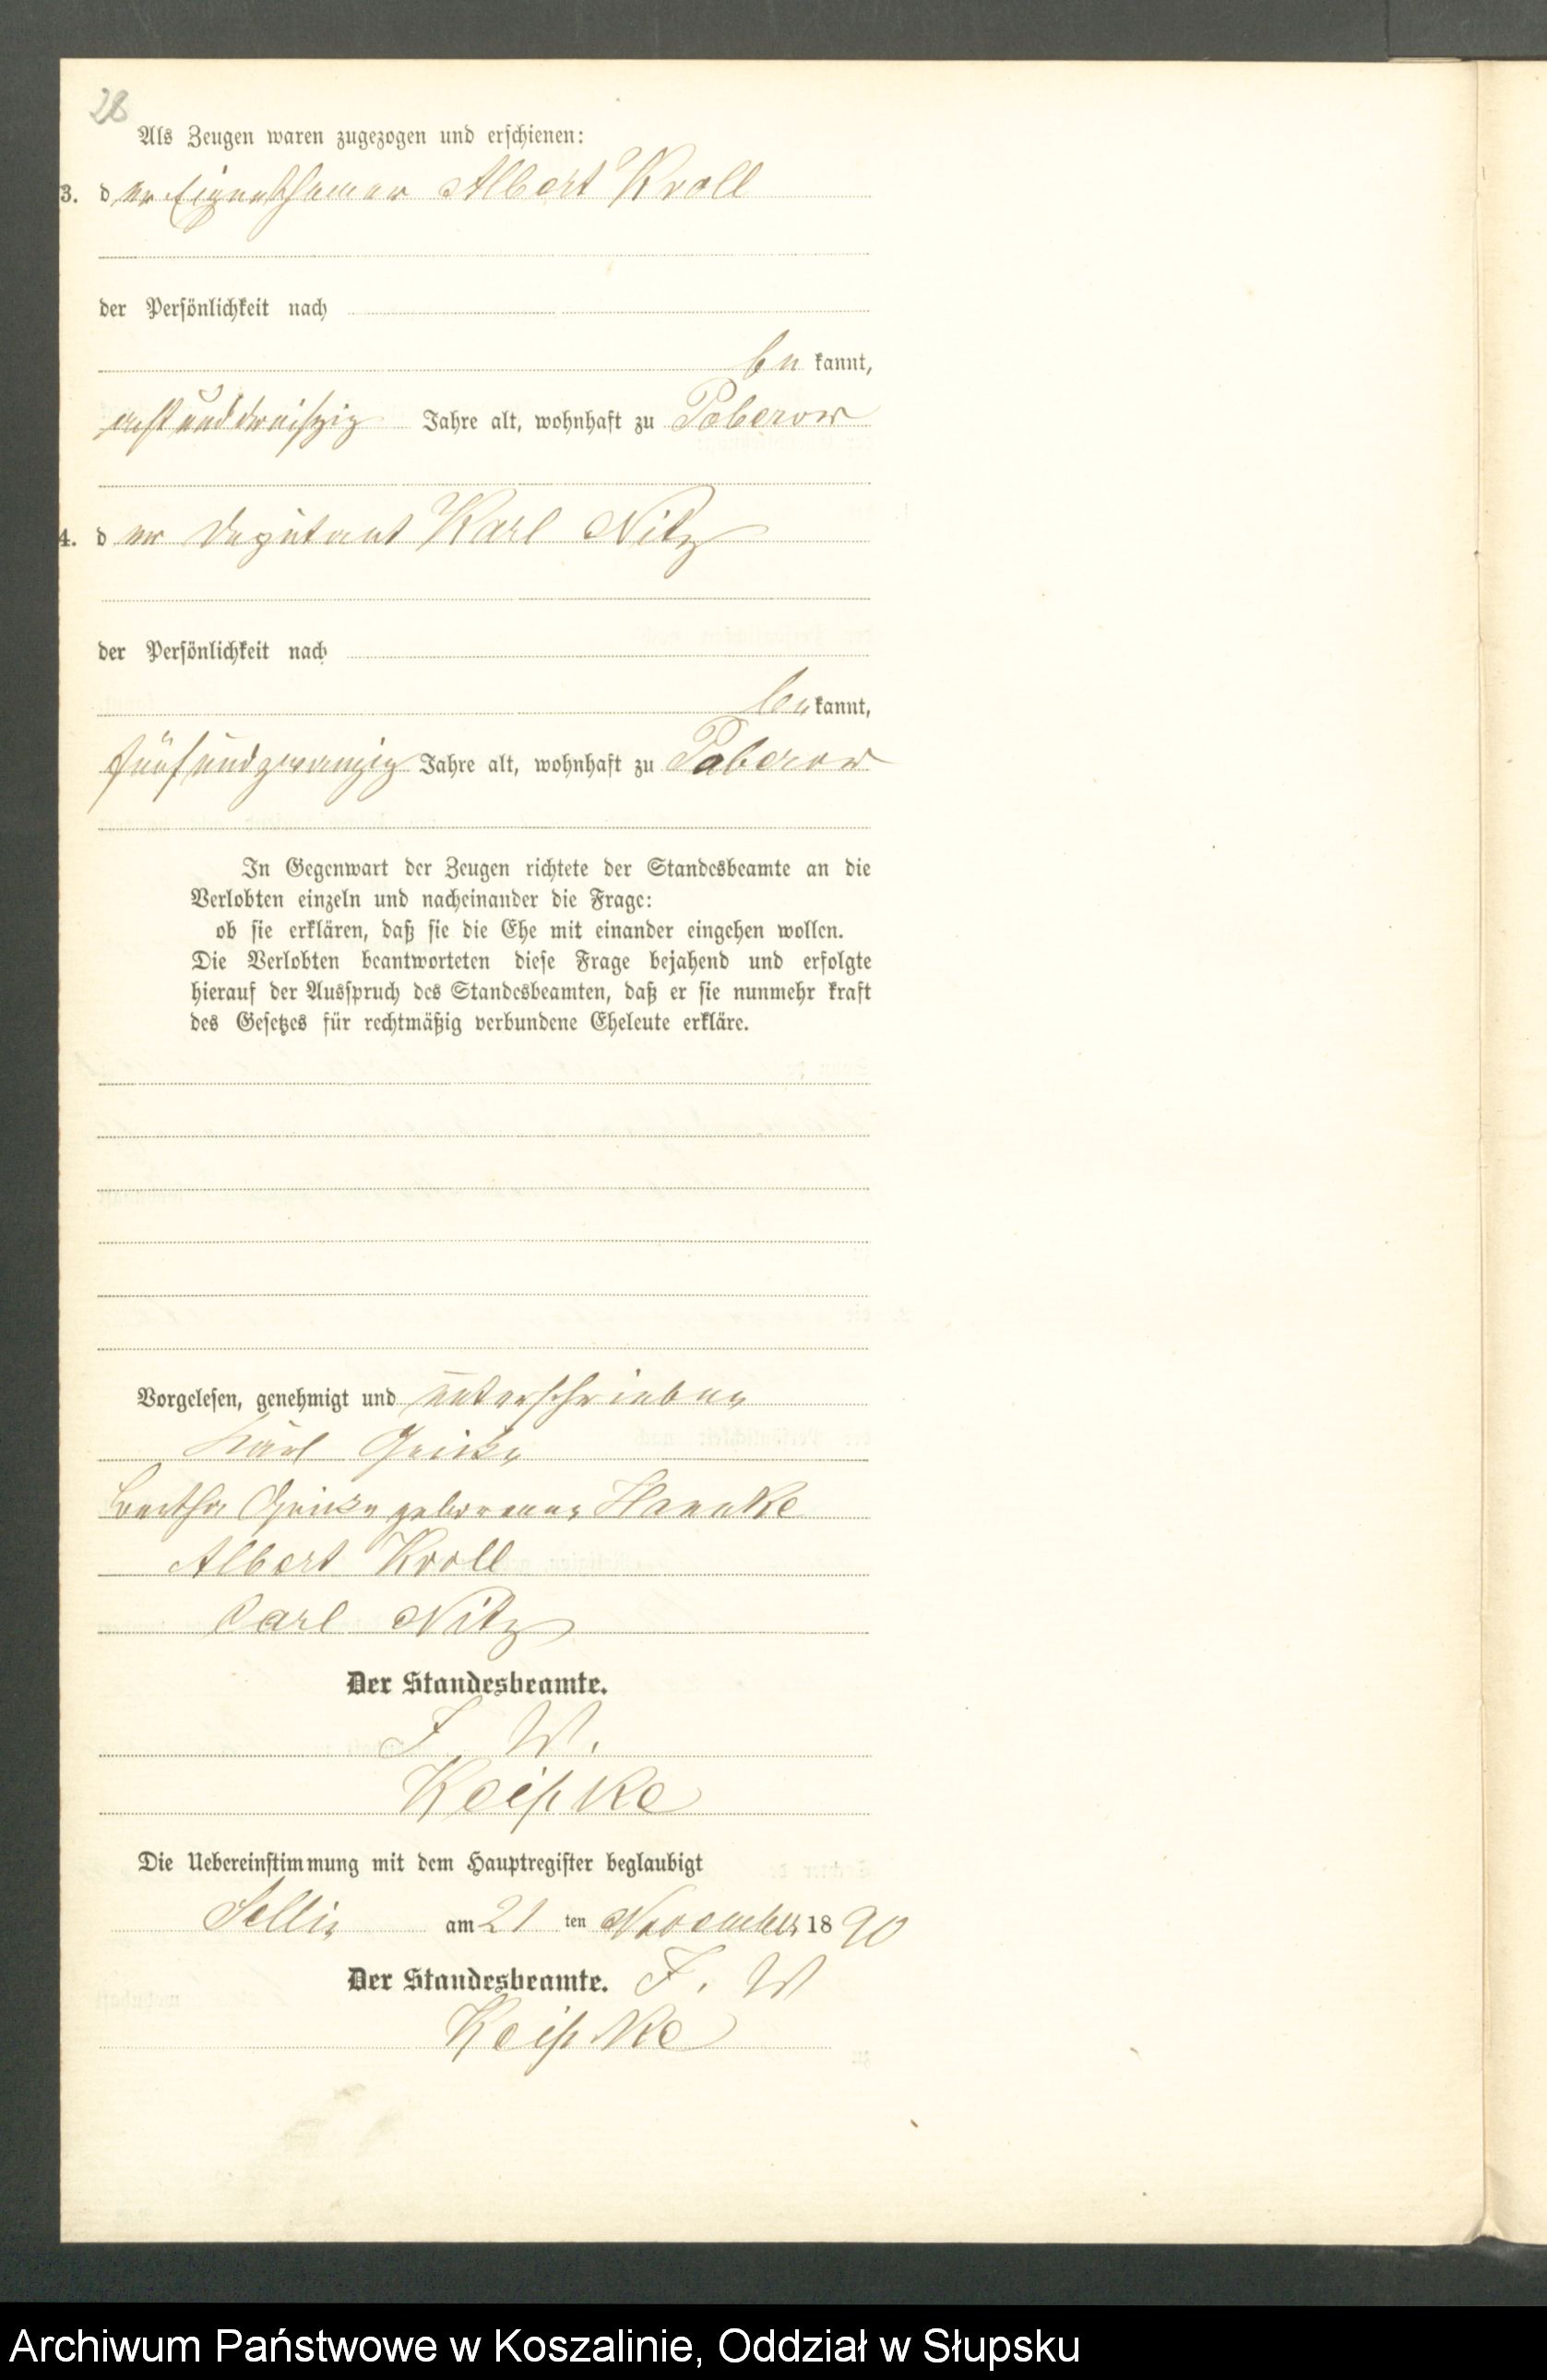 28
Als Zeugen waren zugezogen und erschienen:
3. der Eigenthümer Albert Kroll
der Persönlichkeit nach
be kannt,
achtunddreißig Jahre alt, wohnhaft zu Poberow
4. der Deputant Karl Nitz
der Persönlichkeit nach
be kannt,
fünfundzwanzig Jahre alt, wohnhaft zu Poberow
In Gegenwart der Zeugen richtete der Standesbeamte an die
Verlobten einzeln und nacheinander die Frage:
ob sie erklären, daß sie die Ehe mit einander eingehen wollen.
Die Verlobten beantworteten diese Frage bejahend und erfolgte
hierauf der Ausspruch des Standesbeamten, daß er sie nunmehr kraft
des Gesetzes für rechtmäßig verbundene Eheleute erkläre.
Vorgelesen, genehmigt und unterschrieben
Karl
Bertha geborene
Albert Kroll
Carl Nitz
Der Standesbeamte.
J. W.
Keipke
Die Uebereinstimmung mit dem Hauptregister beglaubigt
am 21 ten November 1890
Der Standesbeamte. J. W
Keipke
Archiwum Państwowe w Koszalinie, Oddział w Słupsku